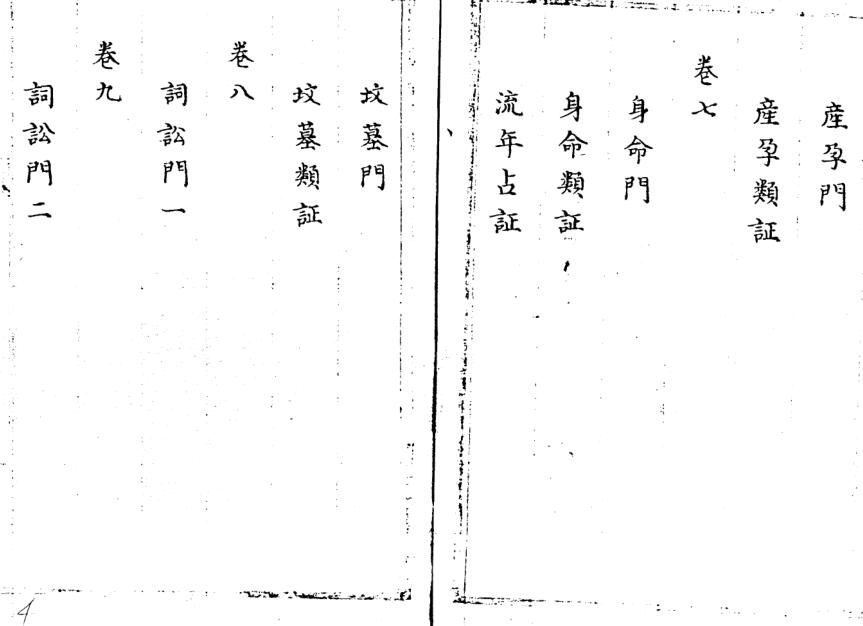 産孕門
産孕類証
卷七
身命門
身命類証
流年占証
坟墓門
坟墓類証
卷八
詞訟門一
卷九
詞訟門二
4